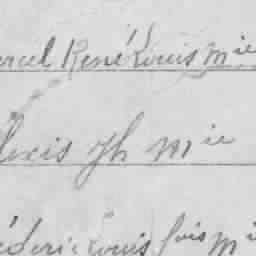 arcel René Louis Mie
lexis Jh Mie
édéric Louis fois Mie